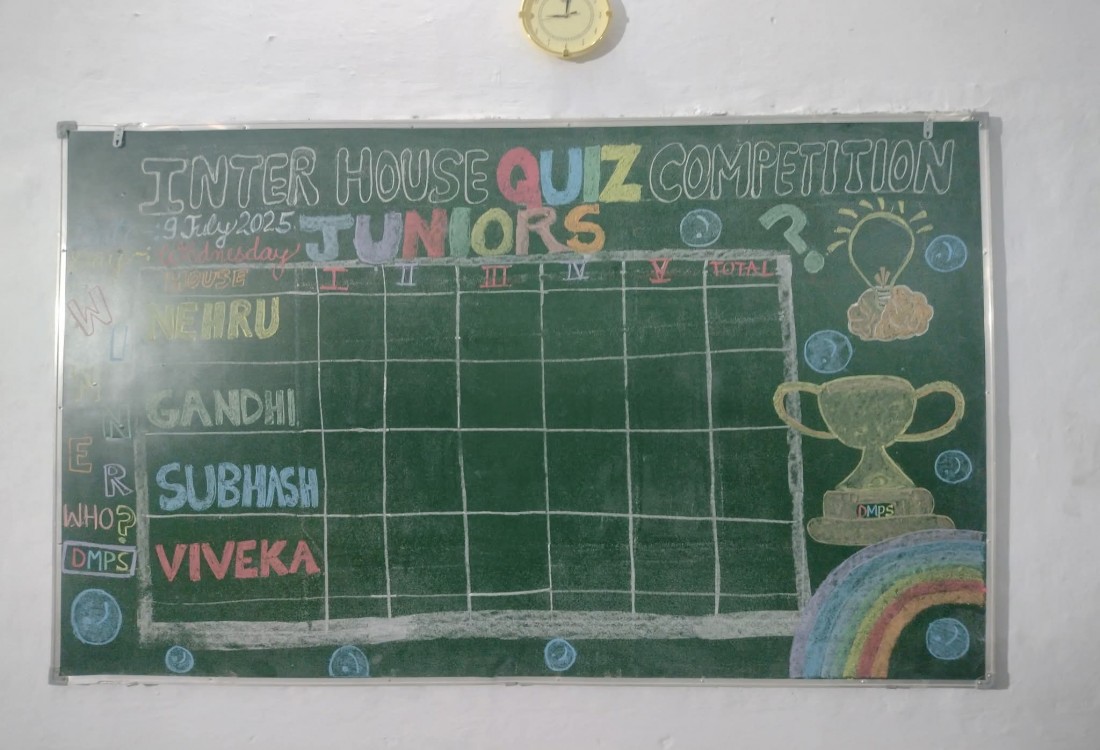 INTER HOUSE QUIZ COMPETITION
9 July 2025
JUNIORS
Wednesday
HOUSE I II III IV V TOTAL
NEHRU
GANDHI
SUBHASH
VIVEKA
WINNER
WHO?
DMPS
DMPS